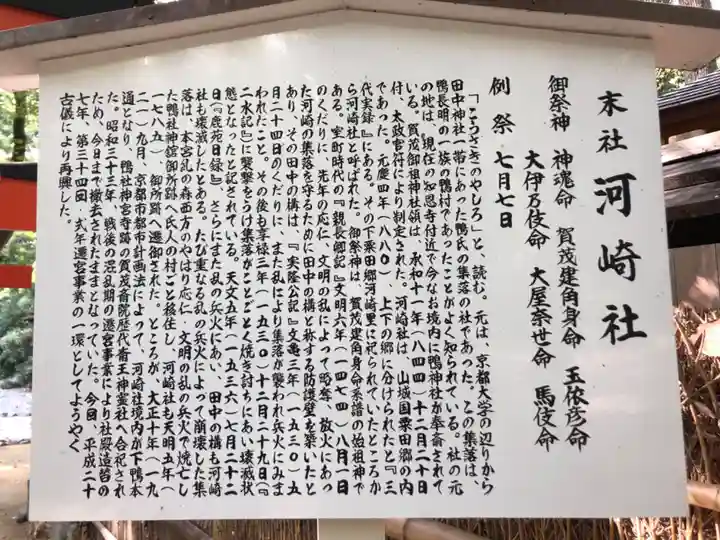 末社 河崎社
御祭神 神魂命 賀茂建角身命 玉依彦命
大伊乃伎命 大屋奈世命 馬伎命
例祭 七月七日
「こうさきのやしろ」と、読む。元は、京都大学の辺りから
田中神社一帯にあった鴨氏の集落の社であった。この集落は、
鴨長明の一族の鴨村であったことがよく知られている。社の元
の地は、現在の知恩寺付近で今なお境内に鴨神社が奉斎されて
いる。賀茂御祖神社領は、承和十一年(八四四)十二月二十日
付、太政官符により制定された。河崎社は、山城国粟田郷の内
であった。元慶四年(八八〇)、上下の郷に分けられたと『三
代実録』にある。その下粟田郷河崎里に祀られていたところか
ら河崎社と呼ばれた。御祭神は、賀茂建角身命系譜の始祖神で
ある。室町時代の『親長卿記』文明六年(一四七四)八月一日
のくだりに、先年の応仁・文明の乱によって略奪、放火にあっ
た河崎の集落を守るために田中の構と称する防護壁を築いたと
あり、その田中の構は、『実隆公記』文亀三年(一五三〇)五
月二十四日のくだりに、また乱により集落が襲われ兵火にみま
われたこと。その後も享禄三年(一五三〇)十二月二十九日(『
二水記』に襲撃をうけ集落がことごとく焼き討ちにあい壊滅状
態となったと記されている。天文五年(一五三六)七月二十二
日(『鹿苑日録』)、さらにまた乱の兵火にあい、田中の構も河崎
社も壊滅したとある。たび重なる乱の兵火によって崩壊した集
落は、本宮乱の森西方のやはり応仁・文明の乱の兵火で焼亡し
た鴨社神舘御所跡へ氏人の村ごと移住し、河崎社も天明五年(
一七八五)、御所跡へ遷御された。ところが、大正十年(一九
二一)九月、京都市都市計画法によって、河崎社境内が下鴨本
通となり、鴨社神宮寺跡の賀茂斎院歴代斎王神霊社へ合祀され
た。昭和三十三年、戦後の混乱期の遷宮事業により社殿造替の
ため、今日まで撤去されたままとなっていた。今回、平成二十
七年、第三十四回・式年遷宮事業の一環としてようやく
古儀により再興した。